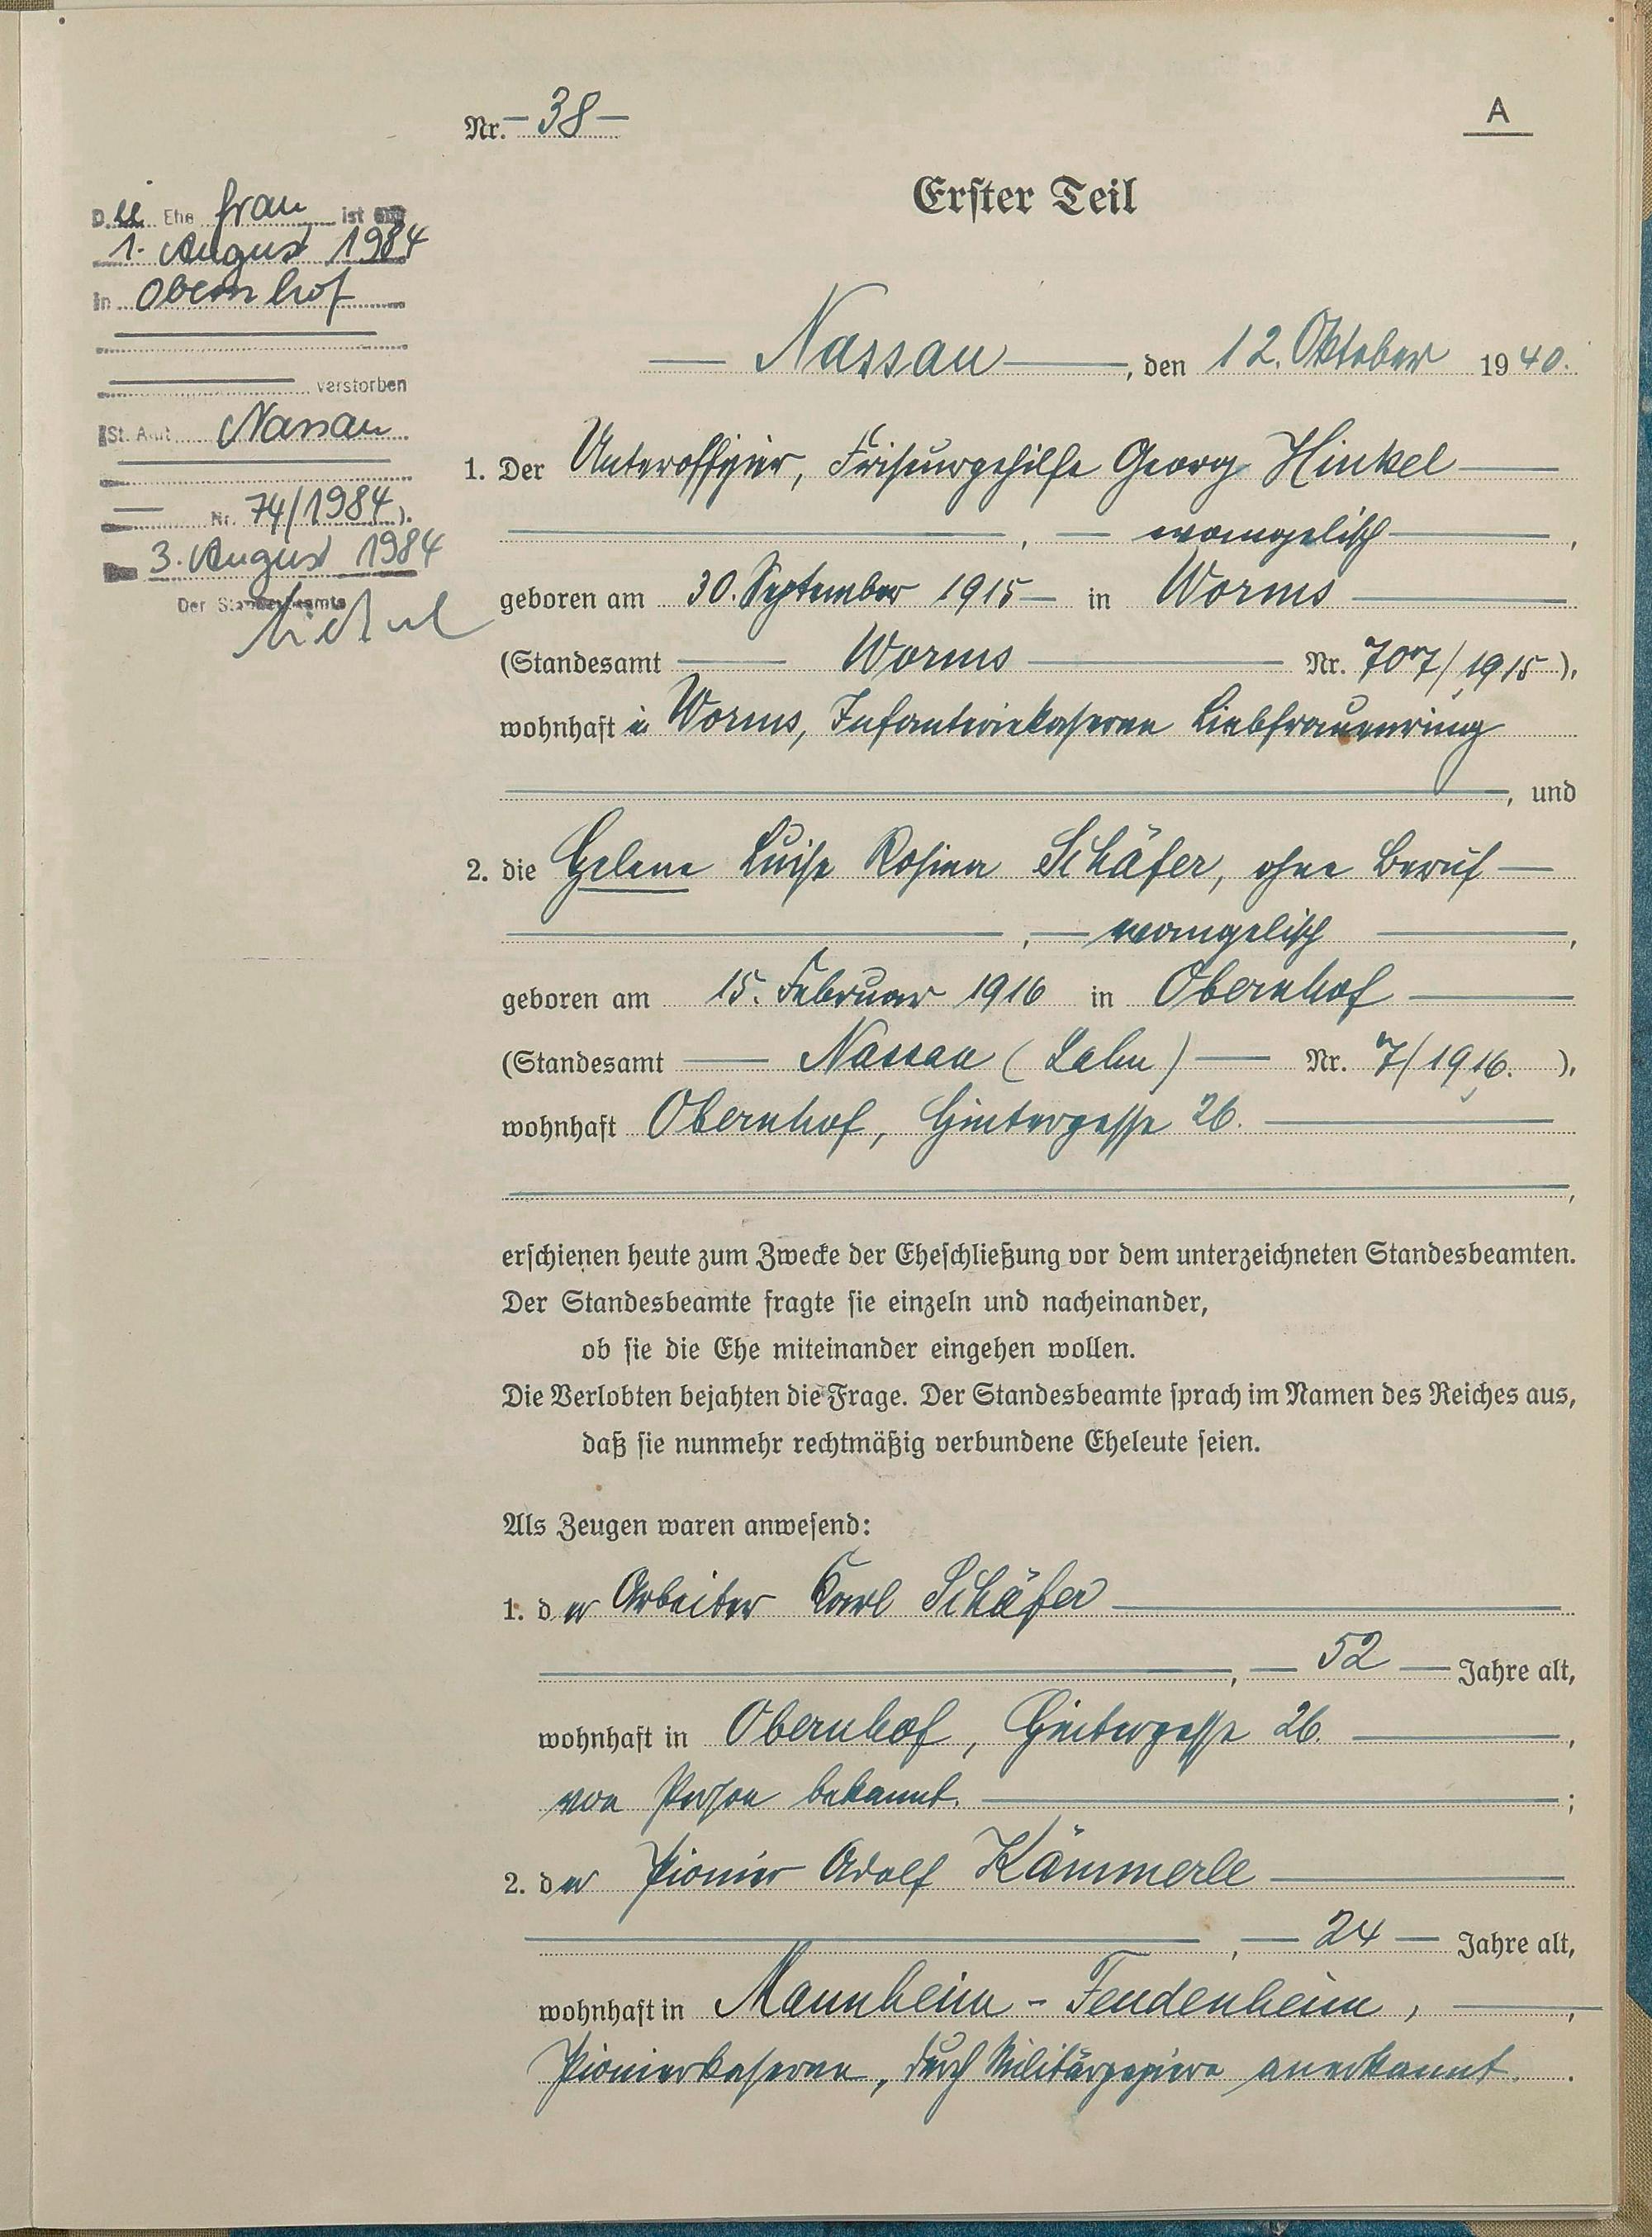 Nr. – 38 –
A
Erster Teil
Die Ehe frau ist
1. August 1984
in Obernhof
verstorben
St. Amt Nassau
Nr. 74/1984).
3. August 1984
Der Standesbeamte
Nassau, den 12. Oktober 1940.
1. Der Unteroffizier, Friseurgehilfe Georg Hinkel
, evangelisch,
geboren am 30. September 1915 in Worms
(Standesamt Worms Nr. 707/1915),
wohnhaft in Worms, Infanteriekaserne Liebfrauenring
, und
2. die Helene Luise Rosina Schäfer, ohne Beruf
, evangelisch,
geboren am 15. Februar 1916 in Obernhof
(Standesamt Nassau (Lahn) Nr. 7/1916.),
wohnhaft Obernhof, Hintergasse 26.
,
erschienen heute zum Zwecke der Eheschließung vor dem unterzeichneten Standesbeamten.
Der Standesbeamte fragte sie einzeln und nacheinander,
ob sie die Ehe miteinander eingehen wollen.
Die Verlobten bejahten die Frage. Der Standesbeamte sprach im Namen des Reiches aus,
daß sie nunmehr rechtmäßig verbundene Eheleute seien.
Als Zeugen waren anwesend:
1. der Arbeiter Karl Schäfer
, 52 Jahre alt,
wohnhaft in Obernhof, Hintergasse 26.,
von Person bekannt.;
2. der Pionier Adolf Kämmerle
, 24 Jahre alt,
wohnhaft in Mannheim - Feudenheim,
Pionierkaserne, durch Militärpapiere anerkannt.